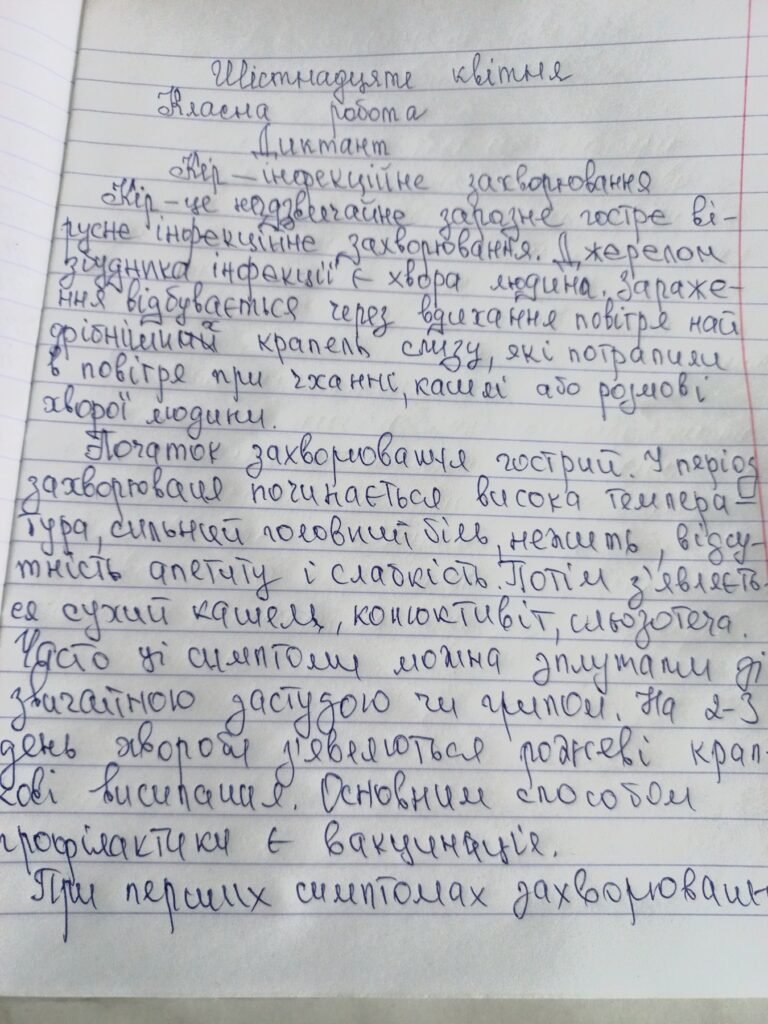 Шістнадцяте квітня
Класна робота
Диктант
Кір – інфекційне захворювання
Кір – це надзвичайне заразне гостре ві-
русне інфекційне захворювання. Джерелом
збудника інфекції є хвора людина. Зараже-
ння відбувається через вдихання повітря най
дрібніших крапель слизу, які потрапили
в повітря при чханні, кашлі або розмові
хворої людини.
Початок захворювання гострий. У період
захворюваня починається висока темпера-
тура, сильний головний біль, нежить, відсу-
тність апетиту і слабкість. Потім з'являєть-
ся сухий кашель, конюктивіт, сльозотеча.
Часто ці симптоми можна зплутати зі
звичайною застудою чи грипом. На 2-3
день хвороби з'являються рожеві крап-
кові висипання. Основним способом
профілактики є вакцинація.
При перших симптомах захворюванн